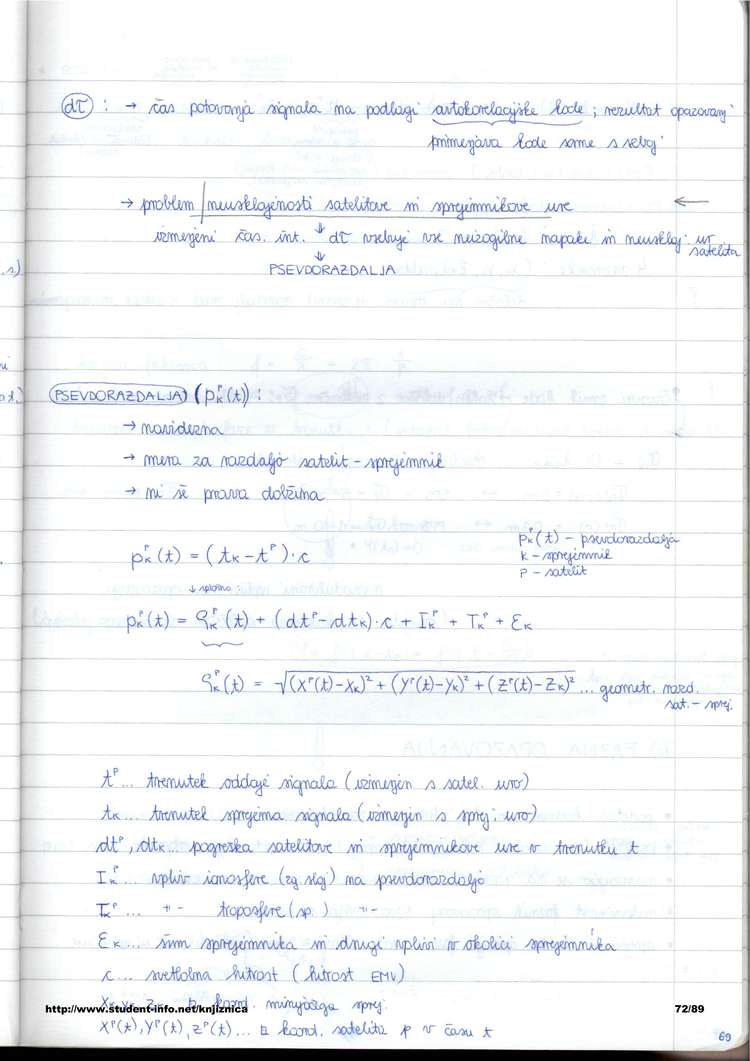 dτ : → čas potovanja signala na podlagi avtokorelacijske kode ; rezultat opazovanj
primerjava kode same s seboj
→ problem neusklajenosti satelitove in sprejemnikove ure ←
izmerjeni čas. int. dτ vsebuje vse neizogibne napake in neusklaj. ur
satelita
↓
PSEVDORAZDALJA
PSEVDORAZDALJA (p_k^p(t)) :
→ navidezna
→ mera za razdaljo satelit - sprejemnik
→ ni še prava dolžina
p_k^p(t) = (t_k - t^p)·c
p_k^p(t) - psevdorazdalja
k - sprejemnik
p - satelit
↓ splošno :
p_k^p(t) = ϱ_k^p(t) + (dt^p - dt_k)·c + I_k^p + T_k^p + ε_k
ϱ_k^p(t) = √((X^p(t)-X_k)² + (Y^p(t)-Y_k)² + (Z^p(t)-Z_k)²) ... geometr. razd.
sat. - sprej.
t^p ... trenutek oddaje signala (izmerjen s satel. uro)
t_k ... trenutek sprejema signala (izmerjen s sprej. uro)
dt^p, dt_k ... pogreška satelitove in sprejemnikove ure v trenutku t
I_k^p ... vpliv ionosfere (zg. sloj) na psevdorazdaljo
T_k^p ... -"- troposfere (sp. ) -"-
ε_k ... šum sprejemnika in drugi vplivi v okolici sprejemnika
c ... svetlobna hitrost (hitrost EMV)
X_k, Y_k, Z_k koord. mirujočega sprej.
http://www.student-info.net/knjiznica 72/89
X^p(t), Y^p(t), Z^p(t) ... koord. satelita p v času t
69